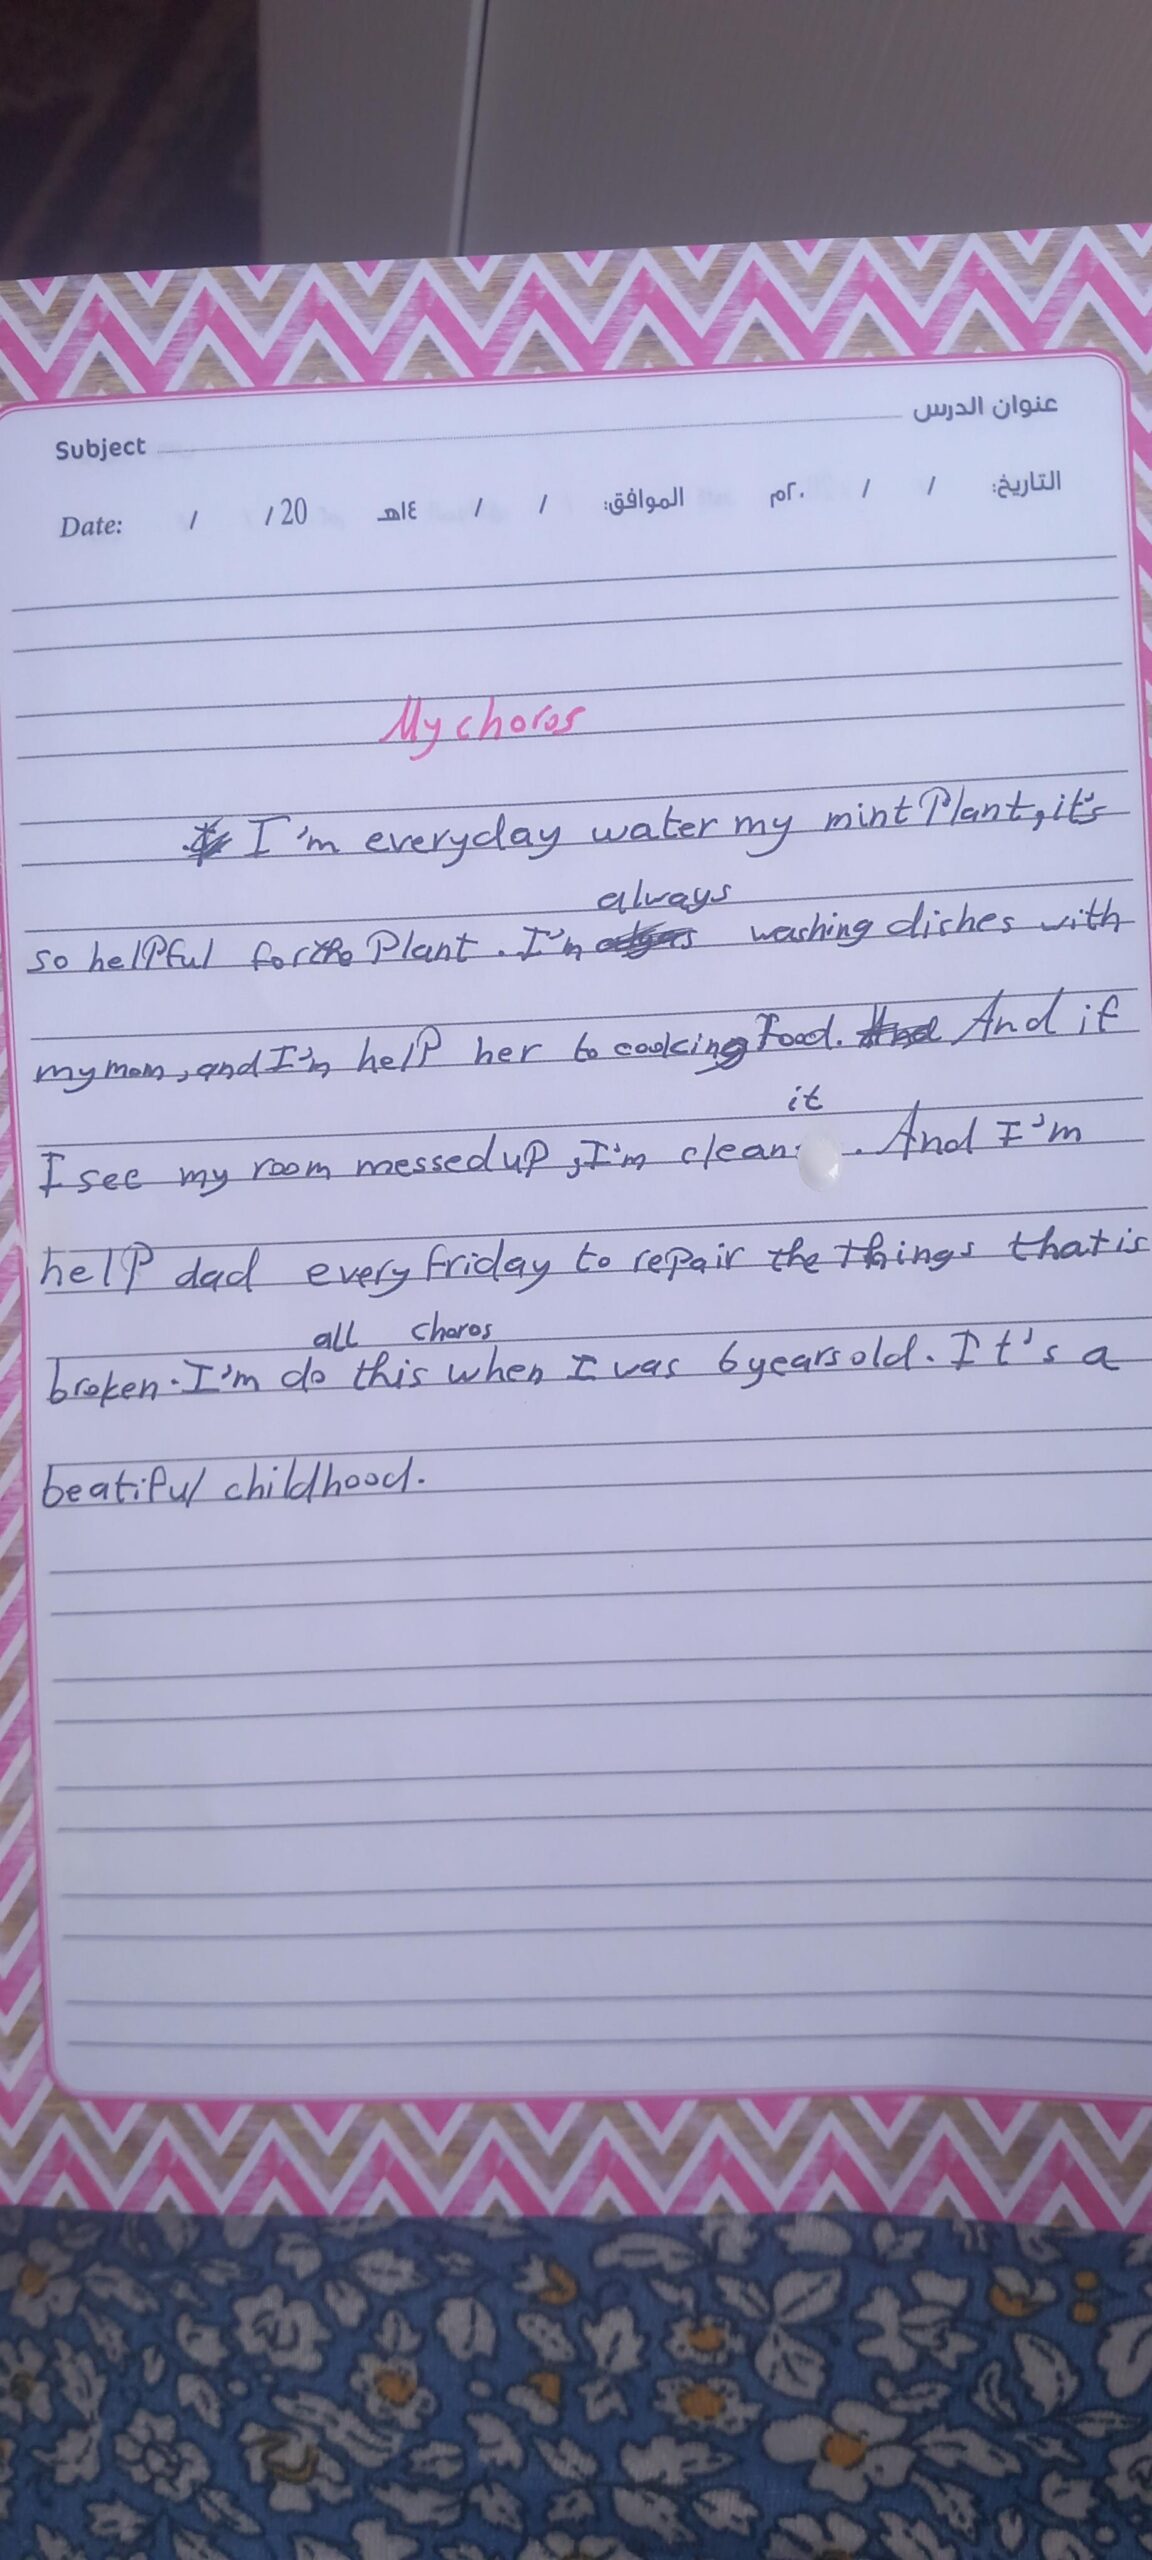 عنوان الدرس
Subject
التاريخ: / / ٢٠م الموافق: / / ١٤هـ
Date: / / 20
My choros
I'm everyday water my mint Plant, it's
always
so helPful for the Plant. I'm washing dishes with
my mom, and I'm helP her to cooking Food. And if
it
I see my room messed uP, I'm clean. And I'm
helP dad every friday to repair the things that is
all choros
broken. I'm do this when I was 6 years old. It's a
beatiful childhood.